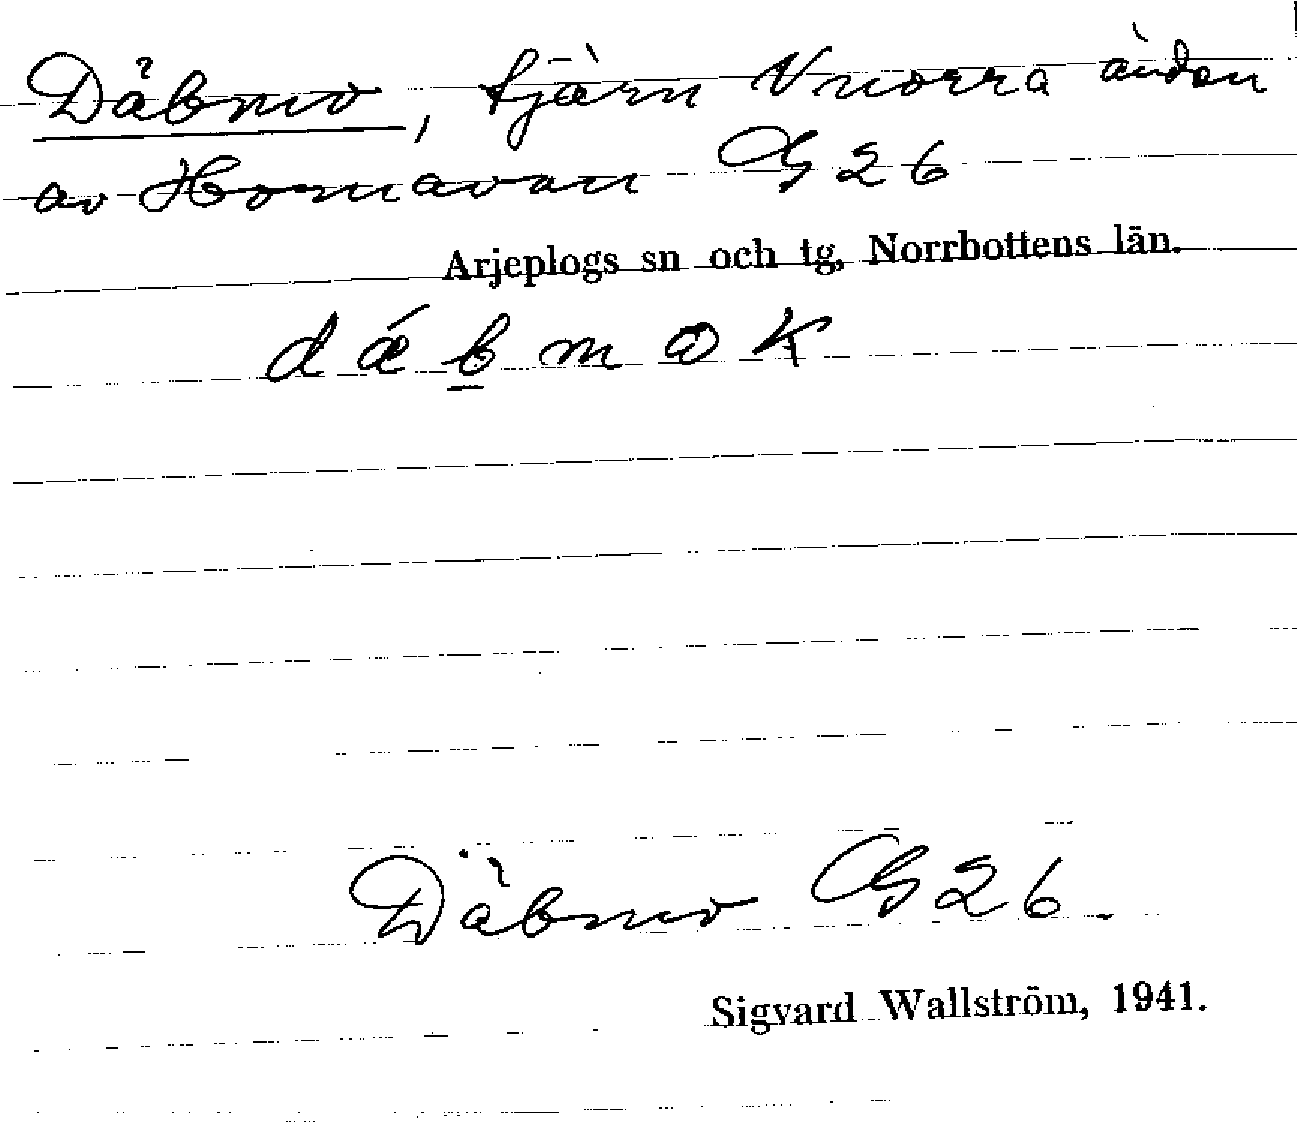 Däbmo, tjärn V norra änden
av Hornavan G 26
Arjeplogs sn och tg, Norrbottens län.
d ǽ b̲ m o k
Däbmo G 26.
Sigvard Wallström, 1941.